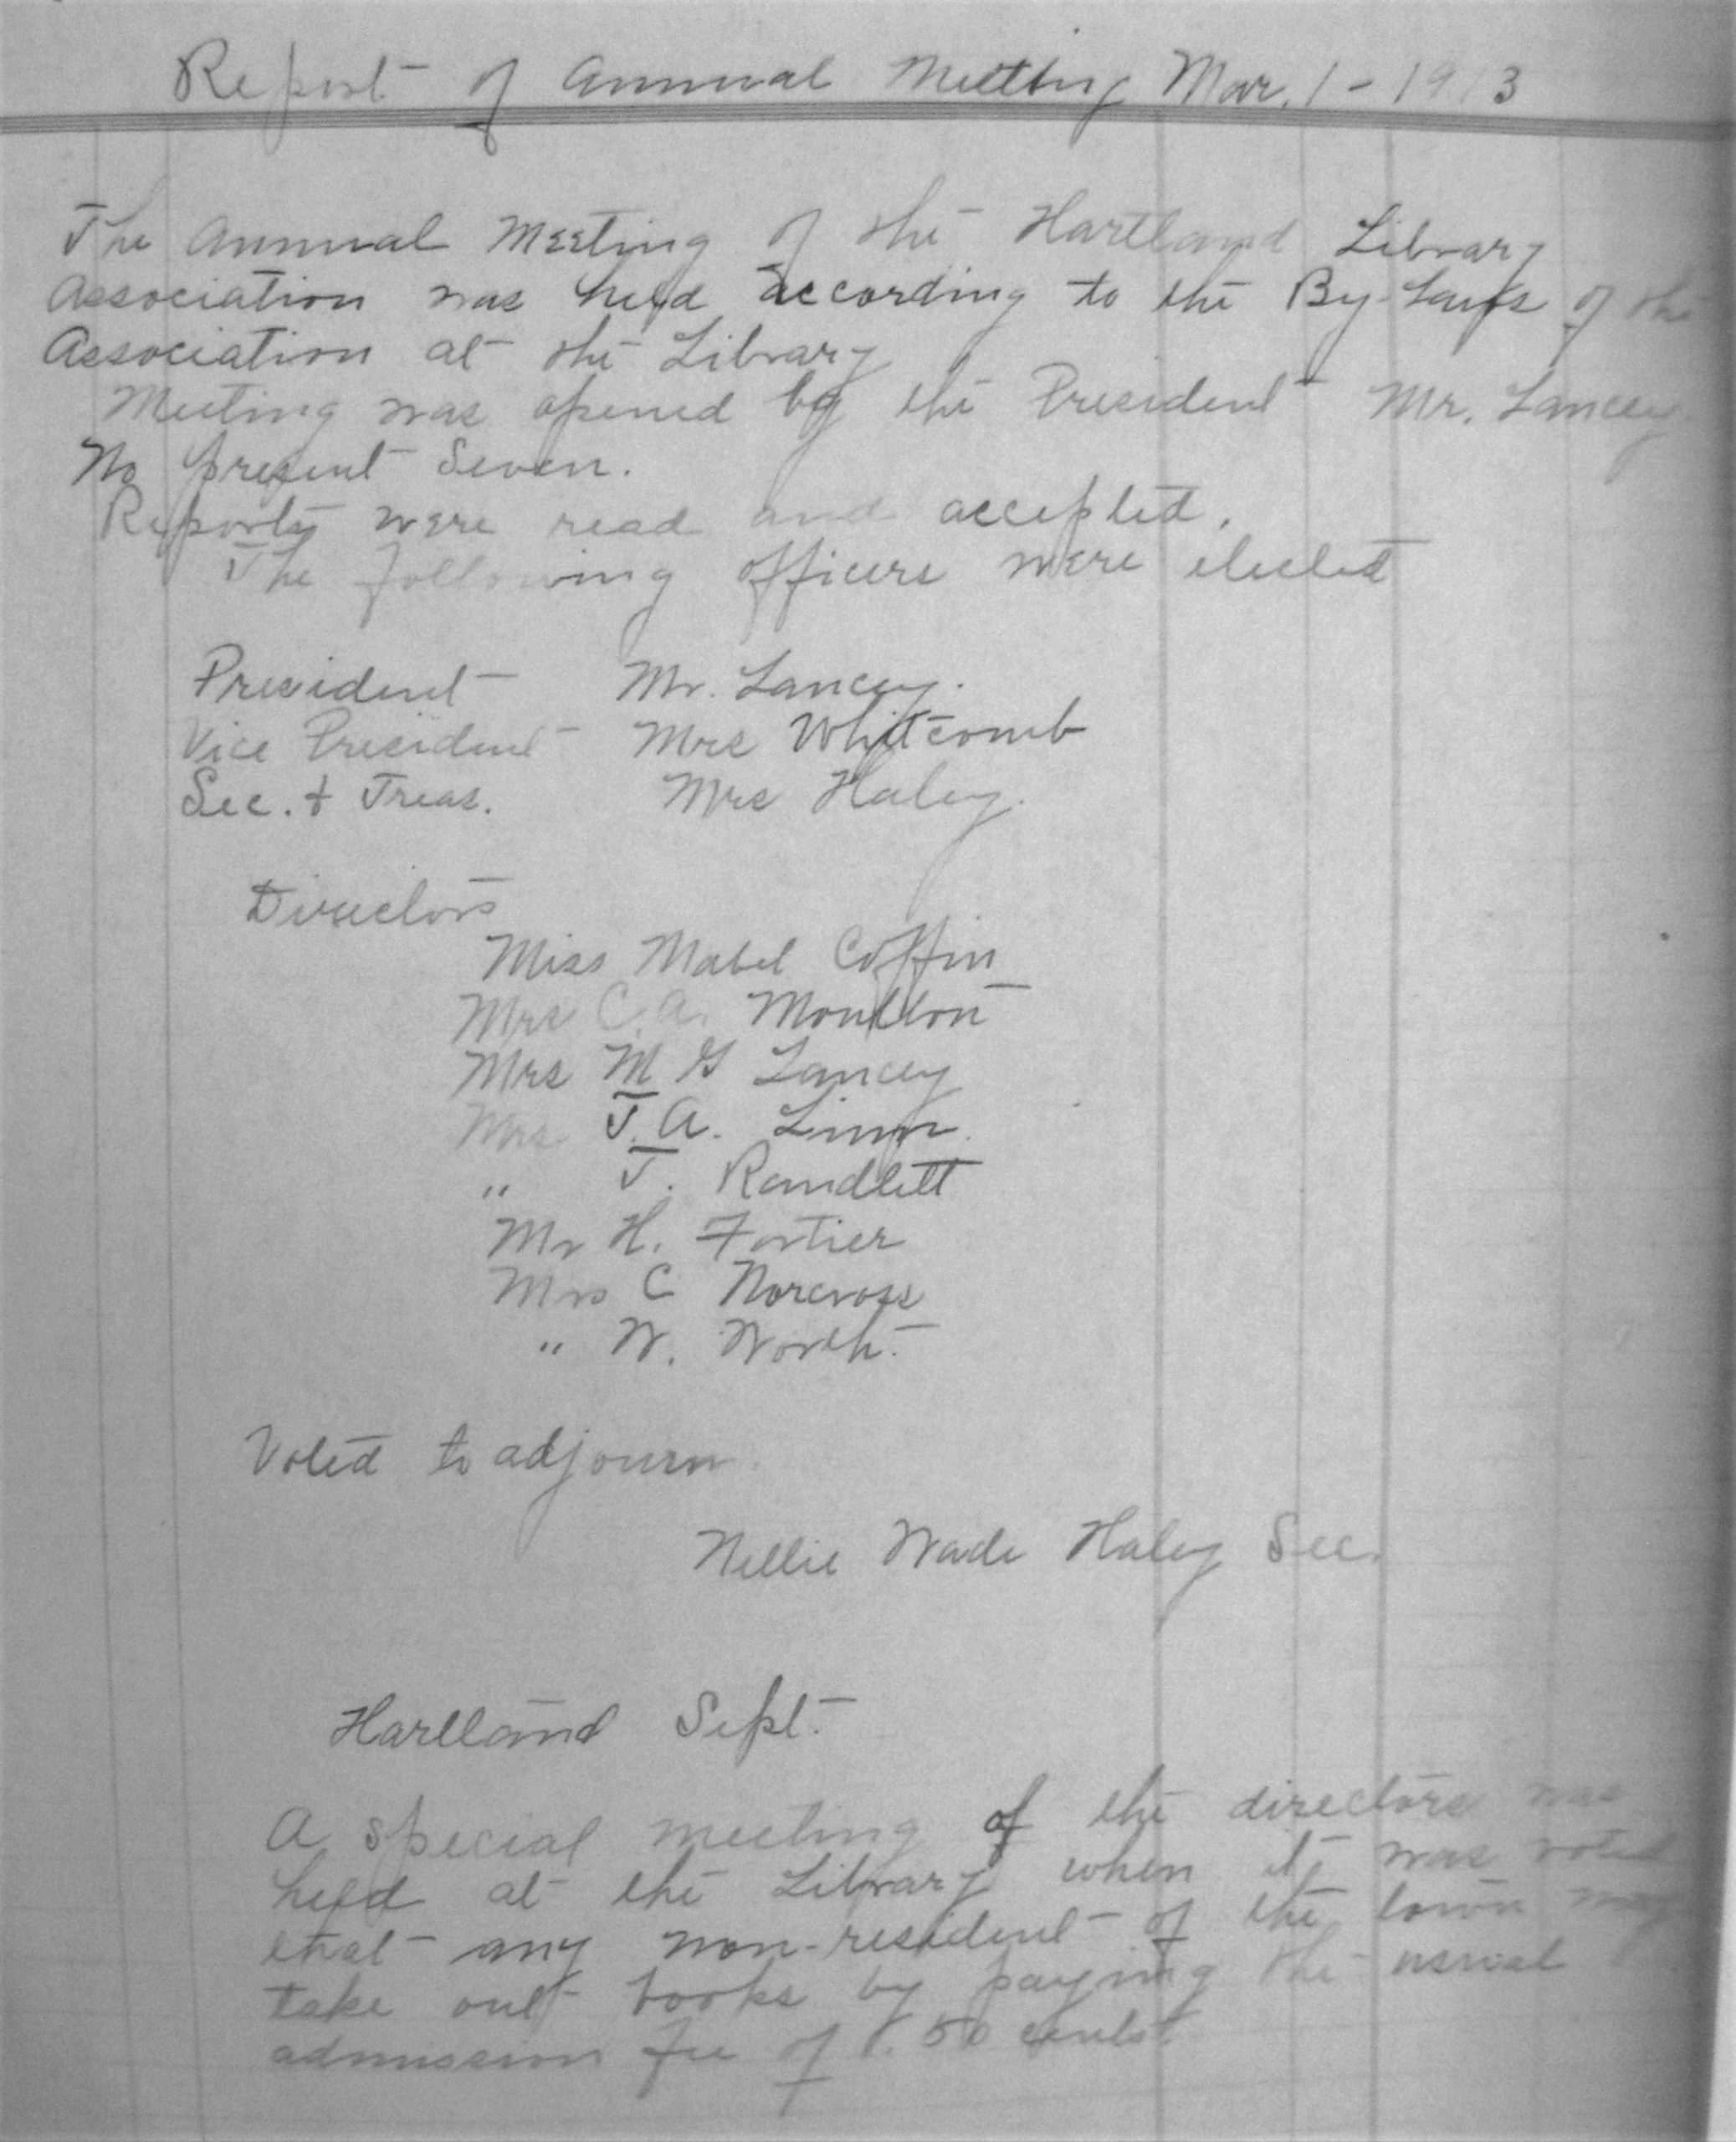 Report of Annual Meeting Mar. 1 - 1913
The Annual Meeting of the Hartland Library
Association was held according to the By-Laws of the
Association at the Library
Meeting was opened by the President Mr. Lancey
No present Seven.
Reports were read and accepted.
The following officers were elected
President Mr. Lancey.
Vice President Mrs Whitcomb
Sec. + Treas. Mrs Haley.
Directors
Miss Mabel Coffin
Mrs C. A. Moulton
Mrs M G Lancey
Mrs T. A. Linn
" T. Randlett
Mr H. Fortier
Mrs C Norcross
" W. Worth.
Voted to adjourn
Nellie Wade Haley Sec.
Hartland Sept.
A special meeting of the directors was
held at the Library when it was voted
that any non-resident of the town may
take out books by paying the usual
admission fee of .50 cents.